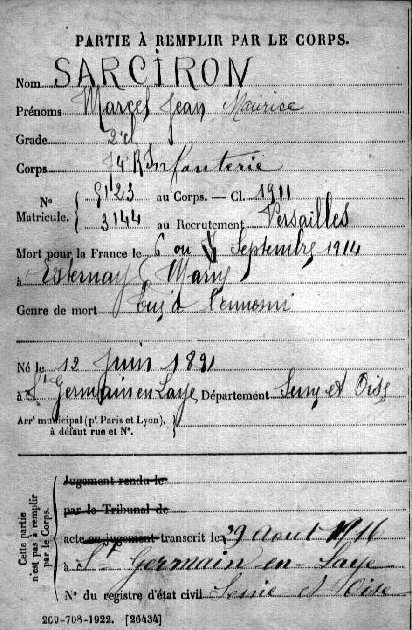 PARTIE À REMPLIR PAR LE CORPS.
Nom SARCIRON
Prénoms Marcel Jean Maurice
Grade 2e cl
Corps 74 R Infanterie
N° Matricule. 5123 au Corps. — Cl. 1911
3144 au Recrutement Versailles
Mort pour la France le 6 ou Septembre 1914
à Esternay (Marne)
Genre de mort Tué à l'ennemi
Né le 12 Juin 1891
à St Germain en Laye Département Seine et Oise
Arrt municipal (pr Paris et Lyon), à défaut rue et N°.
Cette partie n'est pas à remplir par le Corps.
Jugement rendu le
par le Tribunal de
acte ou jugement transcrit le 29 Aout 1916
à St Germain-en-Laye
N° du registre d'état civil Seine et Oise
269-708-1922. [26434]